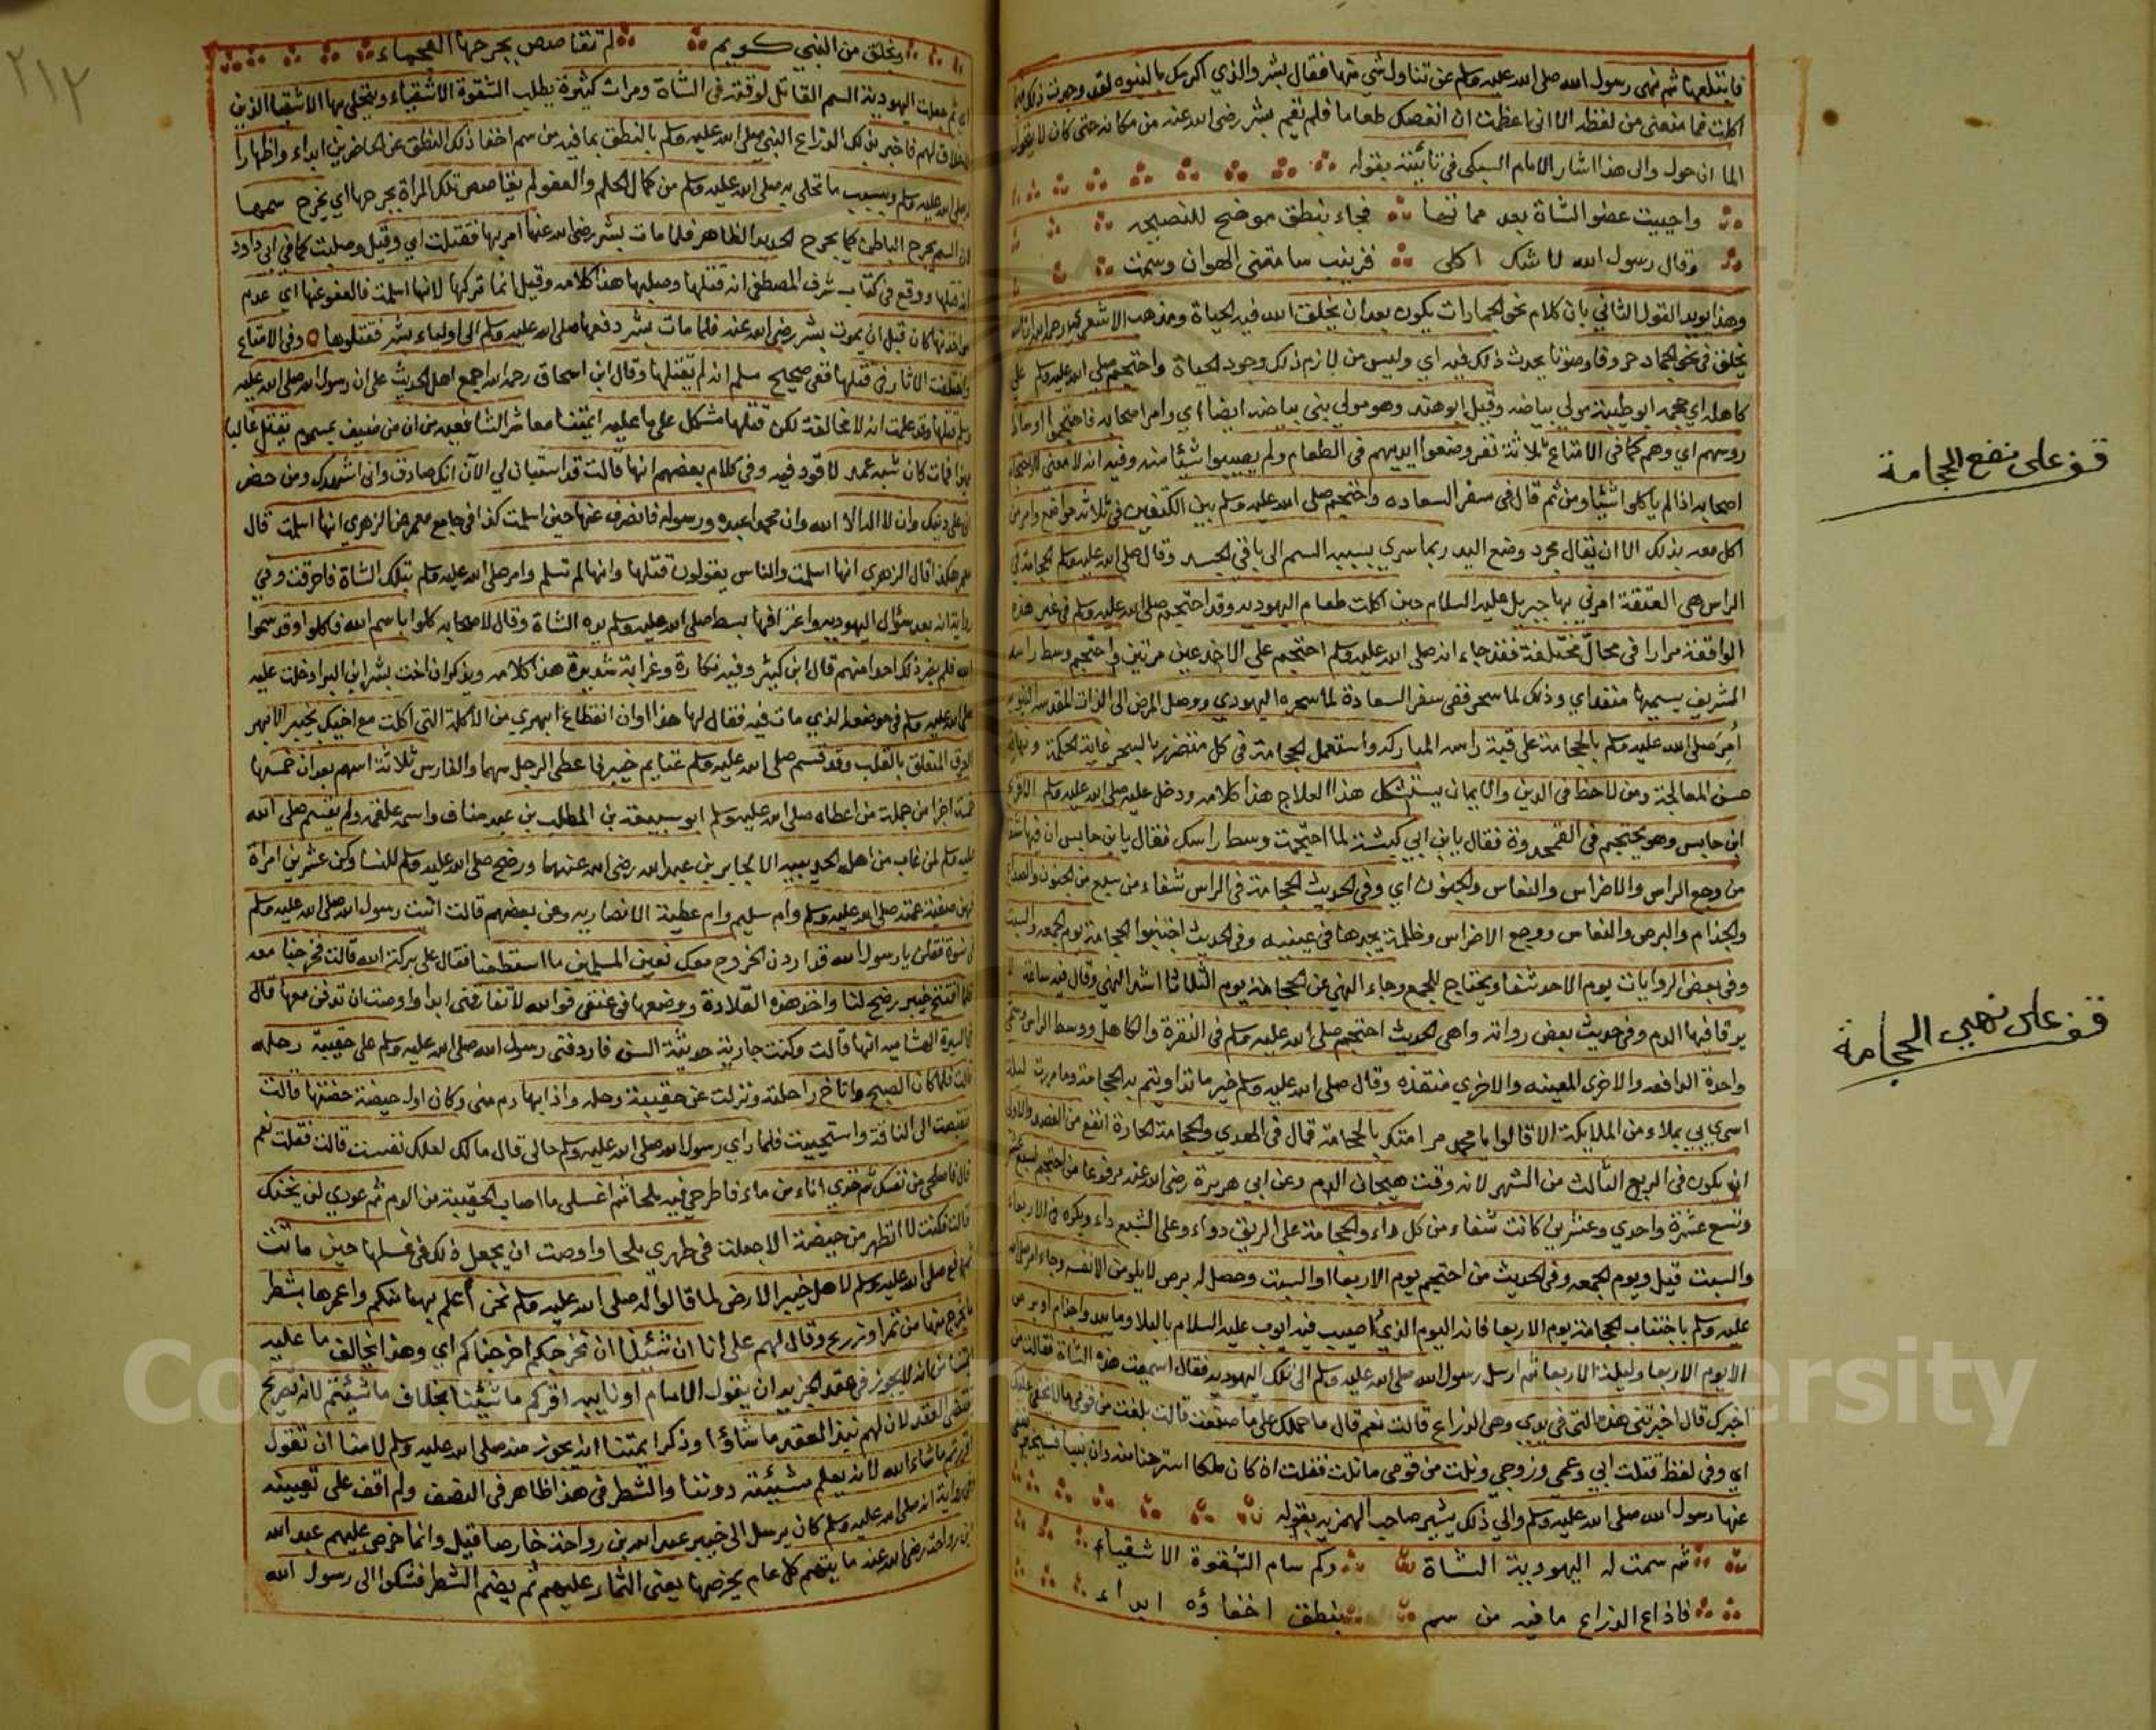 فابتلعها ثم نهى رسول الله صلى الله عليه وسلم عن تناول شي منها فقال بشر والذي اكرمك بالنبوه لقد وجدت ذلك
اكلت فما منعني من لفظه الا اني اعظمت ان انغصك طعاما فلم يقم بشر رضي الله عنه من مكانه حتى كان لا يتحول
الا ان حول والى هذا اشار الامام السبكي في تائيته بقوله
واحييت عضو الشاة بعد مماتها فجاء بنطق موضح للنصيحه
وقال رسول الله لا تك اكلي فزينب سامتني الهوان وسمت
وهذا يويد القول الثاني بان كلام نحو الجمادات يكون بعد ان يخلق الله فيه الحياة ومذهب الاشعري
يخلق في نحو الجماد حروفا وصوتا يحدث ذلك فيه اي وليس من لازم ذلك وجود الحياة واحتجم صلى الله عليه وسلم على
كاهله اي حجمه ابو طيبة مولي بياضه وقيل ابو هند وهو مولي بني بياضه ايضا اي وامر اصحابه فاحتجموا اوساط
روسهم اي وهم كما في الامتاع ثلاثة نفر وضعوا ايديهم في الطعام ولم يصيبوا شيئا منه وفيه انه لا معنى
اصحابه اذا لم ياكلوا شيئا ومن ثم قال في سفر السعاده واحتجم صلى الله عليه وسلم بين الكتفين في ثلاثة مواضع وامر من
اكل معه بذلك الا ان يقال مجرد وضع اليد ربما سري بسببه السم الى باقي الجسد وقال صلى الله عليه وسلم الحجامة في
الراس هي العتقة امرني بها جبريل عليه السلام حين اكلت طعام اليهوديه وقد احتجم صلى الله عليه وسلم في غير هذه
الواقعة مرارا في محال مختلفة فقد جاء انه صلى الله عليه وسلم احتجم على الاخدعين مرتين واحتجم وسط راسه
الشريف يسميها منقذ اي وذلك لما سحر ففي سفر السعادة لما سحره اليهودي ووصل المرض الى الذات المقدسه
أمر صلى الله عليه وسلم بالحجامة على قبة راسه المباركه واستعمل الحجامة في كل متضرر بالسحر غاية الحكمة ونهاية
حسن المعالجة ومن لاحظ في الدين والايمان يستشكل هذا العلاج هذا كلامه ودخل عليه صلى الله عليه وسلم الاقرع
ابن حابس وهو يحتجم في القمحدوة فقال يا بن ابي كبشة لما احتجمت وسط راسك فقال يا بن حابس ان فيها شفا
من وجع الراس والاضراس والنعاس والجنون اي وفي الحديث الحجامة في الراس شفاء من سبع من الجنون والصداع
والجذام والبرص والنعاس ووجع الاضراس وظلمة يجدها في عينيه وفي الحديث اجتنبوا الحجامة يوم الجمعه والسبت
وفي بعض الروايات يوم الاحد شفا ويحتاج للجمع وجاء النهي عن الحجامة يوم الثلاثا اشد النهي وقال فيه ساعة لا
يرقا فيها الدم وفي حديث بعض رواته واهي الحديث احتجم صلى الله عليه وسلم في النقرة والكاهل ووسط الراس وسمى
واحدة النافعه والاخرى المغيثه والاخري منقذه وقال صلى الله عليه وسلم خير ما تداويتم به الحجامة وما مررت ليلة
اسري بي بملاء من الملايكة الا قالوا يا محمد مر امتك بالحجامة قال في الهدي والحجامة الحارة انفع من الفصد والاولى
ان تكون في الربع الثالث من الشهر لانه وقت هيجان الدم وعن ابي هريرة رضي الله عنه مرفوعا من احتجم لسبع عشر
وتسع عشرة واحدي وعشرين كانت شفاء من كل داء والحجامة على الريق دواء وعلى الشبع داء ويكره في الاربعاء
والسبت قيل ويوم الجمعه وفي الحديث من احتجم يوم الاربعا او السبت وحصل له برص لا يلومن الا نفسه وجاء امره صلى الله
عليه وسلم باجتناب الحجامة يوم الاربعا فانه اليوم الذي اصيب فيه ايوب عليه السلام بالبلا وما يبدوا جذام او برص
الا يوم الاربعا وليلة الاربعا ثم ارسل رسول الله صلى الله عليه وسلم الى تلك اليهوديه فقال اسممت هذه الشاة فقالت من
اخبرك قال اخبرتني هذه التي في يدي وهي الذراع قالت نعم قال ما حملك على ما صنعت قالت بلغت من قومي ما لا يخفى عليك
اي وفي لفظ قتلت ابي وعمي وزوجي ونلت من قومي ما نلت فقلت ان كان ملكا استرحنا منه وان نبيا فسيخبر
عنها رسول الله صلى الله عليه وسلم والي ذلك يشير صاحب الهمزيه بقوله
ثم سمت له اليهودية الشاة وكم سام الشقوة الاشقياء
فاذاع الذراع ما فيه من سم بنطق اخفاؤه ابداء
قف على نفع الحجامة
قف على نهي الحجامة
٢١٢
وبخلق من النبي كريم لم تقاصص بجرحها العجماء
اي ثم جعلت اليهودية السم القاتل لوقته في الشاة ومرات كثيرة يطلب الشقوة الاشقياء ويتحلي بها الاشقيا الذين
لا خلاق لهم فاخبر بذلك الذراع النبي صلى الله عليه وسلم بالنطق بما فيه من سم اخفا ذلك النطق عن الحاضرين ابداء واظهارا
له صلى الله عليه وسلم وبسبب ما تحلى به صلى الله عليه وسلم من كمال الحلم والعفو لم يقاصص تلك المراة بجرحها اي بجرح سمها
لان السم يجرح الباطن كما يجرح الحديد الظاهر فلما مات بشر رضي الله عنه امر بها فقتلت اي وقيل وصلبت كما في ابي داود
انه قتلها ووقع في كتاب شرف المصطفى انه قتلها وصلبها هذا كلامه وقيل انما تركها لانها اسلمت فالعفو عنها اي عدم
مواخذتها كان قبل ان يموت بشر رضي الله عنه فلما مات بشر دفعها صلى الله عليه وسلم الى اولياء بشر فقتلوها وفي الامتاع
واختلفت الاثار في قتلها ففي صحيح مسلم انه لم يقتلها وقال ابن اسحاق رحمه الله اجمع اهل الحديث على ان رسول الله صلى الله عليه
وسلم قتلها وقد علمت انه لا مخالفة لكن قتلها مشكل على ما عليه ايمتنا معاشر الشافعيه من ان من ضيف بمسموم يقتل غالبا
فمات كان شبه عمد لا قود فيه وفي كلام بعضهم انها قالت قد استبان لي الآن انك صادق واني اشهدك ومن حضر
اني على دينك وان لا اله الا الله وان محمدا عبده ورسوله فانصرف عنها حين اسلمت كذا في جامع معمر عن الزهري انها اسلمت قال
معمر هكذا قال الزهري انها اسلمت والناس يقولون قتلها وانها لم تسلم وامر صلى الله عليه وسلم بتلك الشاة فاحرقت وفي
رواية انه بعد سؤال اليهوديه واعترافها بسط صلى الله عليه وسلم يده الشاة وقال لاصحابه كلوا باسم الله فاكلوا وقد سموا
الله فلم يضر ذلك احدا منهم قال ابن كثير وفيه نكارة وغرابة شديدة هذا كلامه ويذكر ان اخت بشر ابن البرا دخلت عليه
صلى الله عليه وسلم في مرضه الذي مات فيه فقال لها هذا اوان انقطاع ابهري من الاكلة التي اكلت مع اخيك بخيبر الابهر
العرق المتعلق بالقلب وقد قسم صلى الله عليه وسلم غنايم خيبر فاعطى الرجل سهما والفارس ثلاثة اسهم بعد ان خمسها
خمسة اجزا من جملة من اعطاه صلى الله عليه وسلم ابو سبيقة بن المطلب بن عبد مناف واسمه علقمه ولم يقسم صلى الله
عليه وسلم لمن غاب من اهل الحديبيه الا لجابر بن عبد الله رضي الله عنهما ورضخ صلى الله عليه وسلم للنسا وكن عشرين امراة
فيهن صفية عمته صلى الله عليه وسلم وام سليم وام عطية الانصاريه وعن بعضهم قالت اتيت رسول الله صلى الله عليه وسلم
في نسوة فقلن يا رسول الله قد اردن الخروج معك نعين المسلمين ما استطعنا فقال على بركة الله قالت فخرجنا معه
فلما افتتح خيبر رضخ لنا واخذ هذه القلادة ووضعها في عنقي فوالله لا تفارقني ابدا واوصت ان تدفن معها قال
في السيرة الهشاميه انها قالت وكنت جارية حديثة السن فاردفني رسول الله صلى الله عليه وسلم على حقيبة رحله
قالت فلما كان الصبح واناخ راحلته ونزلت عن حقيبة رحله واذا بها دم مني وكان اول حيضة حضتها قالت
فتقبضت الى الناقة واستحييت فلما راي رسول الله صلى الله عليه وسلم حالي قال مالك لعلك نفست قالت فقلت نعم
قال فاصلحي من نفسك ثم خذي اناء من ماء فاطرحي فيه ملحا ثم اغسلي ما اصاب الحقيبة من الدم ثم عودي
قالت فكنت لا اتطهر من حيضة الا جعلت في طهري ملحا واوصت ان يجعل ذلك في غسلها حين ماتت
صلى الله عليه وسلم لاهل خيبر الارض لما قالوا له صلى الله عليه وسلم نحن أعلم بها منكم واعمرها بشطر
ما يخرج منها من تمر او زرع وقال لهم على انا ان شئنا ان نخرجكم اخرجناكم اي وهذا يخالف ما عليه
ايمتنا من انه لا يجوز في عقد الجزيه ان يقول الامام او نايبه اقركم ما شئنا بخلاف ما شئتم لانه تصريح
بمقتضى العقد لان لهم نبذ العقد ما شاؤا وذكر ايمتنا انه يجوز منه صلى الله عليه وسلم لا منا ان نقول
اقررتكم ما شاء الله لانه يعلم مشيئة دوننا والشطر في هذا ظاهر في النصف ولم اقف على تعيينه
في رواية انه صلى الله عليه وسلم كان يرسل الى خيبر عبد الله بن رواحة خارصا قيل وانما خرص عليهم عبد الله
ابن رواحة رضي الله عنه ما ياتيهم كل عام يخرصها يعني الثمار عليهم ثم يضمنهم الشطر فشكوا الى رسول الله